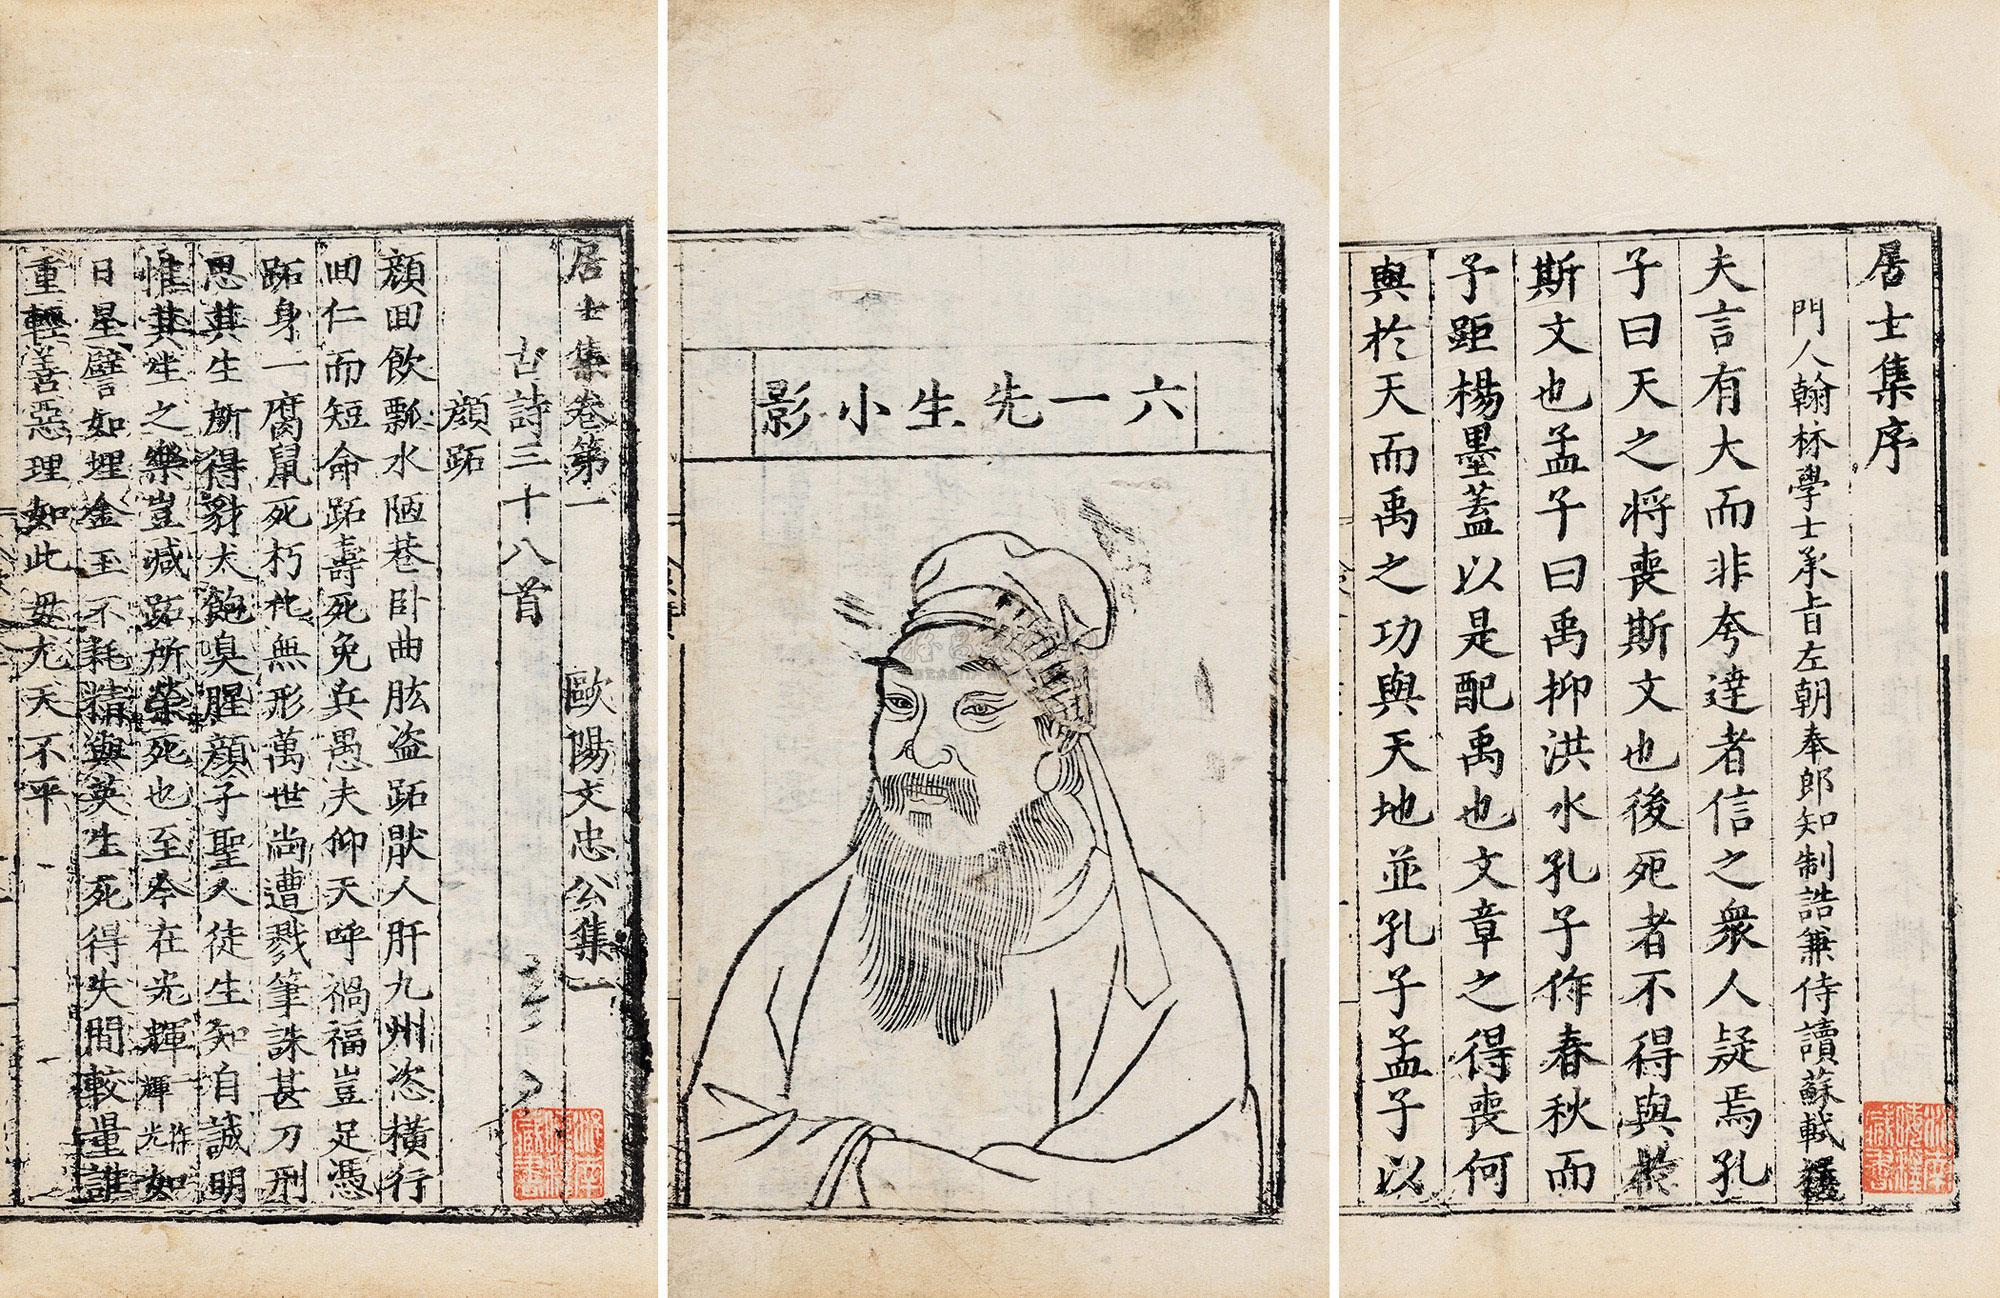 居士集序
門人翰林學士承旨左朝奉郎知制誥兼侍讀蘇軾撰
夫言有大而非夸達者信之衆人疑焉孔
子曰天之將喪斯文也後死者不得與於
斯文也孟子曰禹抑洪水孔子作春秋而
予距楊墨蓋以是配禹也文章之得喪何
與於天而禹之功與天地並孔子孟子以
六一先生小影
居士集卷第一
歐陽文忠公集一
古詩三十八首
顔跖
顔回飲瓢水陋巷卧曲肱盗跖猒人肝九州恣横行
回仁而短命跖壽死免兵愚夫仰天呼禍福豈足憑
跖身一腐鼠死朽化無形萬世尚遭戮筆誅甚刀刑
思其生所得豺犬飽臭腥顔子聖人徒生知自誠明
惟其生之樂豈減跖所榮死也至今在光輝輝作光如
日星譬如埋金玉不耗精與英生死得失間較量誰
重輕善惡理如此毋尤天不平